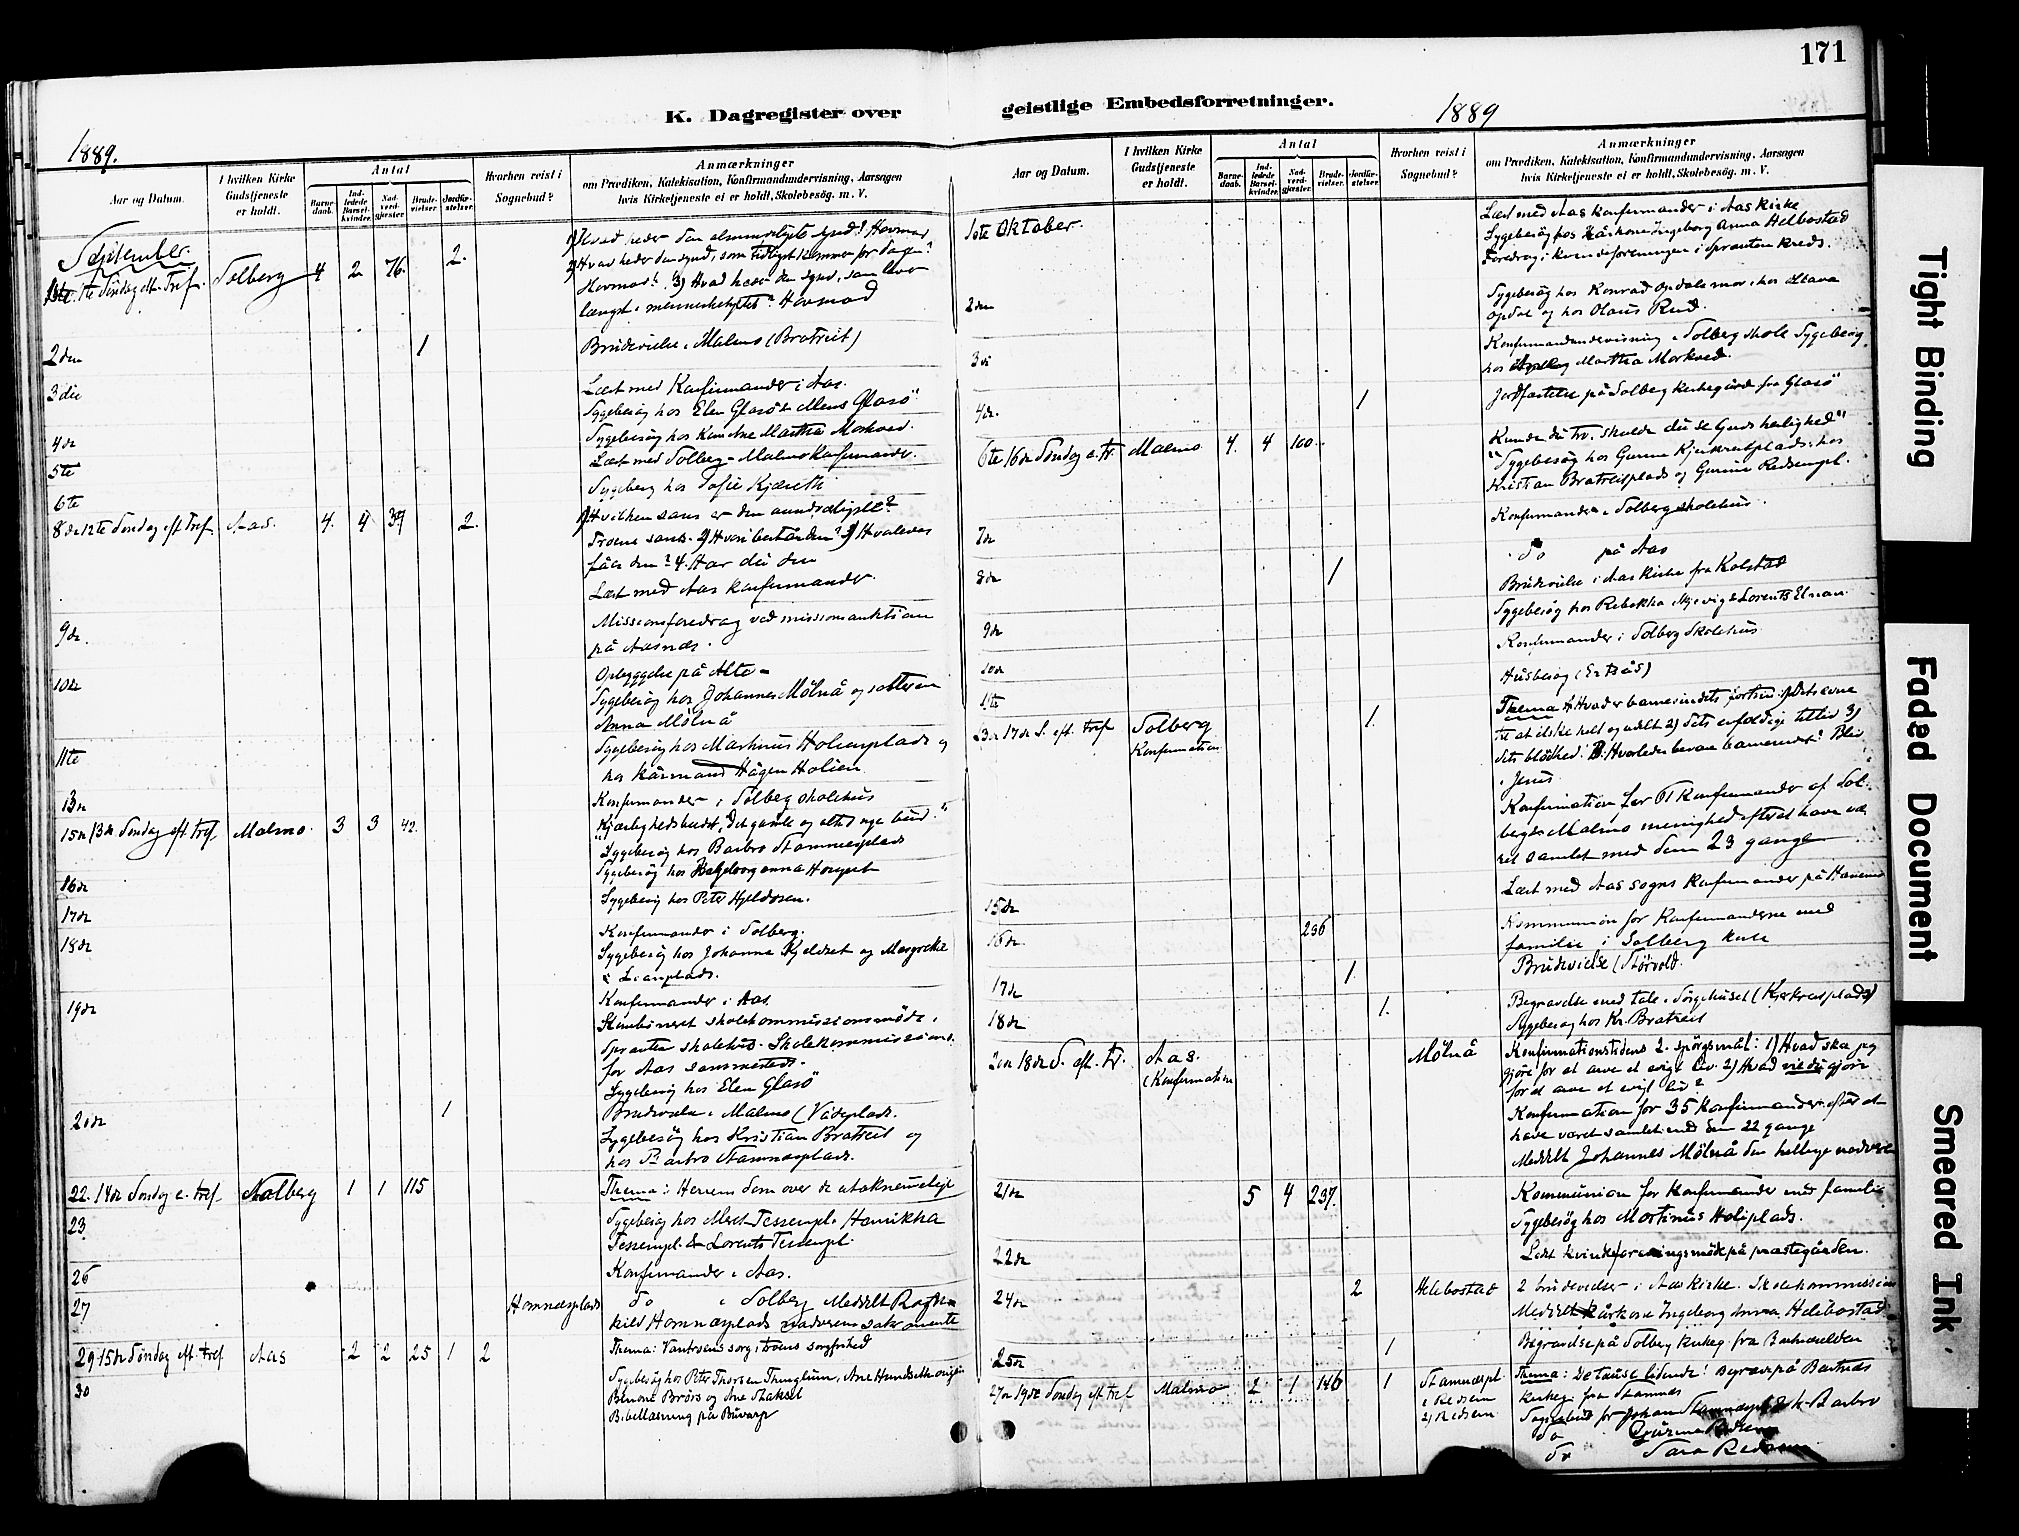 171
K. Dagregister over geistlige Embedsforretninger.
1889
1889.
Aar og Datum.
I hvilken Kirke Gudstjeneste er holdt.
Antal
Barne-daab.
Ind-ledede Barsel-kvinder.
Nad-verd-gjæster.
Brude-vielser.
Jordfæ-stelser.
Hvorhen reist i Sognebud?
Anmærkninger
om Prædiken, Katekisation, Konfirmandundervisning, Aarsagen
hvis Kirketjeneste ei er holdt, Skolebesög. m. V.
September
1te Söndag eft. Tref. Solberg 4 2 76. 2.
1) Hvad heder den almindeligste synd? Hovmod
2) Hvad heder den synd, som tidligst kommer for dagen?
Hovmod? 3) Hvad heder den synd, som lever
længst i menneskehjertet? Hovmod
2den 1 Brudevielse i Malmo (Bratreit)
3die Læst med Konfirmander i Aas.
Sygebesög hos Elen Glasö & Mens Glasö
4de Sygebesög hos Martha Morkved.
5te Læst med Solberg-Malmo Konfirmander.
6te Sygebesög hos Sofie
8de 12te Söndag eft Tref. Aas. 4. 4 39 2.
1) Hvilken sans er den
Troens sans. 2) Hvori består den? 3) Hvorledes
fåes den? 4. Har du den
Læst med Aas konfirmander.
9de. Missionsforedrag ved missionsauktion
på Aasnæs.
10de Opbyggelse på Alte-
Sygebesög hos Johannes Mölnå og datteren
Anna Mölnå
11te Sygebesög hos Martinus Holienplads og
hos Kårmand Hågen Holien.
13de Konfirmander i Solberg skolehus
15de 13de Söndag eft. Tref. Malmo. 3 3 42.
Kjærlighedsbudet, "det gamle og altid nye bud."
Sygebesög hos Barbro Stamnesplads
16de Sygebesög hos
17de Sygebesög hos Peter Hjeldosen.
18de Konfirmander i Solberg.
Sygebesög hos Johanna og Margrethe
Lianplads.
19de Konfirmander i Aas.
Kombineret skolekommissionsmöde i
Sprauten skolehus. Skolekommission
for Aas sammesteds.
Sygebesög hos Elen Glasö
20de 1 Brudevielse i Malmo (Vådeplads.
Sygebesög hos Kristian Bratreit og
hos Barbro Stamnesplads.
22. 14de Söndag e. Tref Solberg 1 1 115
Thema: Herrens dom over de utaknemmelige
23. Sygebesög hos Meret Tessempl. Henrikka
Tessempl. & Lorents Tessempl.
26 Konfirmander i Aas.
27 Homnesplads do i Solberg Meddelt Ragn-
hild Homnesplads nadverens sakramente
29 15de Söndag eft. Tref Aas 2 2 25 1 2
Thema: Vantroens sorg, troens sorgfrihed
30 Sygebesög hos Peter Thorsen Thinglum,
Benone Brörs og Ane Staksel
Bibellæsning på Buvarp
Aar og Datum.
I hvilken Kirke Gudstjeneste er holdt.
Antal
Barne-daab.
Ind-ledede Barsel-kvinder.
Nad-verd-gjæster.
Brude-vielser.
Jordfæ-stelser.
Hvorhen reist i Sognebud?
Anmærkninger
om Prædiken, Katekisation, Konfirmandundervisning, Aarsagen
hvis Kirketjeneste ei er holdt, Skolebesög. m. V.
1ste Oktober. Læst med Aas konfirmander i Aas Kirke
Sygebesög hos Kårkone Ingeborg Anna Helbostad
Foredrag i kvindeforeningen i Sprauten Kreds.
2den Sygebesög hos Konrad Opdals mor, hos
Opdal og hos Olaus Rud.
3die Konfirmandundervisning i Solberg skole Sygebesög
hos Martha Morkved.
4de. 1 Jordfæstelse på Solberg kirkegård fra Glasö
6te 16de Söndag e. Tr. Malmo 4. 4 100.
"Kunde du tro, skulde du se Guds herlighed"
Sygebesög hos Gunna hos
Kristian Bratreitsplads og Gurine Redsempl.
7de Konfirmander i Solberg skolehus
8de 1 do på Aas
Brudevielse i Aas Kirke fra Kolstad
9de Sygebesög hos Rebekka & Lorents Elnan.
10de Konfirmander i Solberg Skolehus
11te Husbesög
13de 17de S. eft. Tref Solberg Konfirmation 1.
Thema A Hvad er barnesindets fortrin: 1) Dets evne
til at elske helt og udelt 2) dets enfoldige tillid 3)
dets blöthed. B. Hvorledes bevare barnesindet? Bliv
i Jesus
Konfirmation for 61 Konfirmander af Sol-
berg & Malmo menighed efter at have væ-
ret samlet med dem 23 gange
15de Læst med Aas sogns Konfirmander på
16de. 236 Kommunion for Konfirmanderne med
familie i Solberg kirke
17de 1. Brudevielse (Störvold.
18de 1. Begravelse med tale i Sörgehuset
Sygebesög hos Kr. Bratreit
20de 18de S. eft. Tr. Aas. (Konfirmation Mölnå
Konfirmationstidens 2. spörgsmål: 1) Hvad skal jeg
gjöre for at arve et evigt liv. 2) Hvad vil du gjöre
for at arve et evigt liv?
Konfirmation for 35 Konfirmander efter at
have været samlet med dem 22 gange
Meddelt Johannes Mölnå den hellige nadvere
21de 5 4 237. Kommunion for Konfirmander med familie
Sygebesög hos Martinus Holiplads.
22de Ledet kvindeforeningsmöde på præstegården.
24de 2 Helbostad 2 brudevielser i Aas kirke. Skolekommission
Meddelt kårkone Ingeborg Anna Helbostad
25de 1 Begravelse på Solberg kirkeg. fra
27de 19de Söndag eft Tref Malmo 2 1 146 1 Stamnespl.
Thema: De tause lidende! Begravelse på Bartnes
kirkeg. fra Stamnes
Redsem
2) Redsem
Sognebud for Johan Stamnespl. & k. Barbro
do Gurine Redsem
do Sara Redsem
Tight Binding
Faded Document
Smeared Ink.